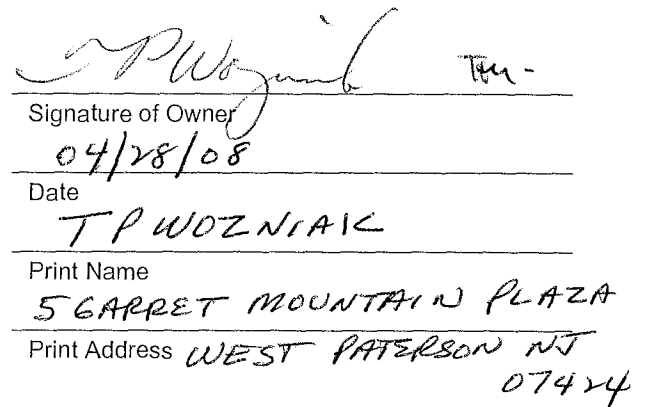 TP Wozniak
Signature of Owner
04/28/08
Date
TP WOZNIAK
Print Name
5 GARRET MOUNTAIN PLAZA
Print Address WEST PATERSON NJ
07424